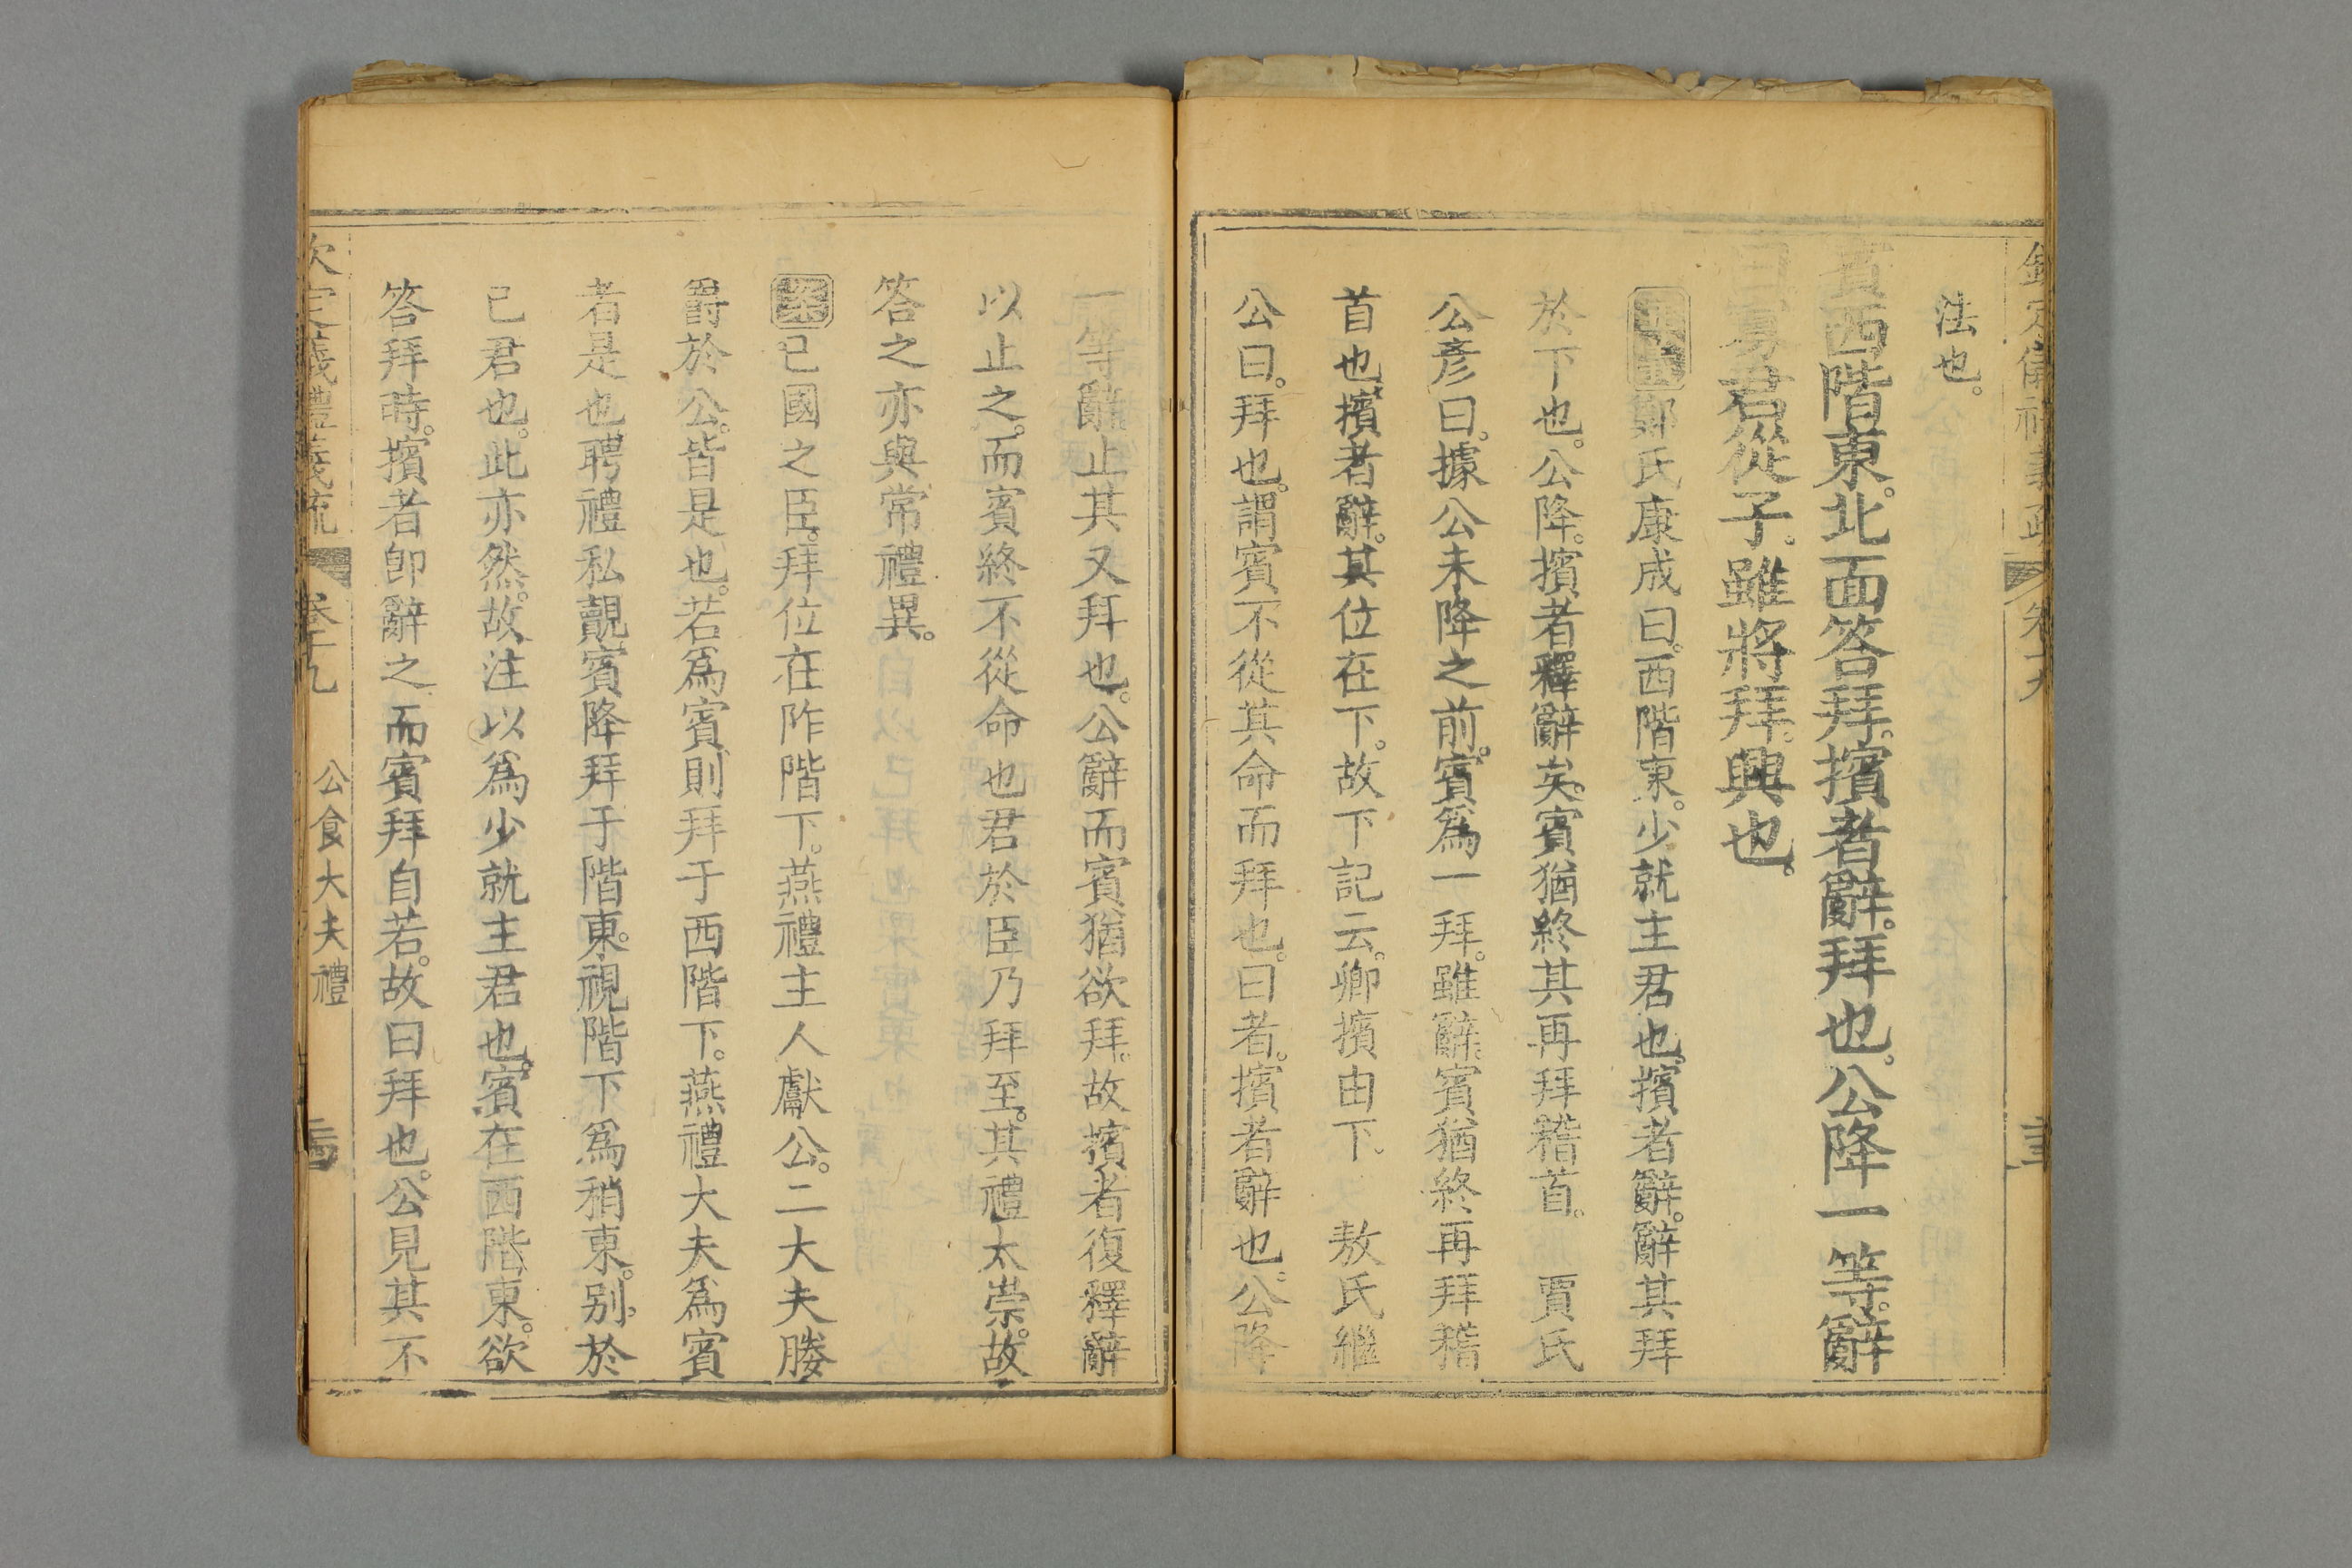 法也。
賓西階東。北面答拜。擯者辭。拜也。公降一等。辭
曰。寡君從子。雖將拜。興也。
鄭氏康成曰。西階東。少就主君也。擯者辭。辭其拜
於下也。公降。擯者釋辭矣。賓猶終其再拜稽首。 賈氏
公彥曰。據公未降之前。賓爲一拜。雖辭。賓猶終再拜稽
首也。擯者辭。其位在下。故下記云。卿擯由下。 敖氏繼
公曰。拜也。謂賓不從其命而拜也。曰者。擯者辭也。公降
一等辭止其又拜也。公辭而賓猶欲拜。故擯者復釋辭
以止之。而賓終不從命也君於臣乃拜至。其禮太崇。故
答之亦與常禮異。
案已國之臣。拜位在阼階下。燕禮主人獻公。二大夫媵
爵於公。皆是也。若爲賓。則拜于西階下。燕禮大夫爲賓
者是也。聘禮私覿賓降拜于階東。視階下爲稍東。别於
已君也。此亦然。故注以爲少就主君也。賓在西階東。欲
答拜時。擯者卽辭之而賓拜自若。故曰拜也。公見其不
欽定儀禮義疏 卷十九 公食大夫禮